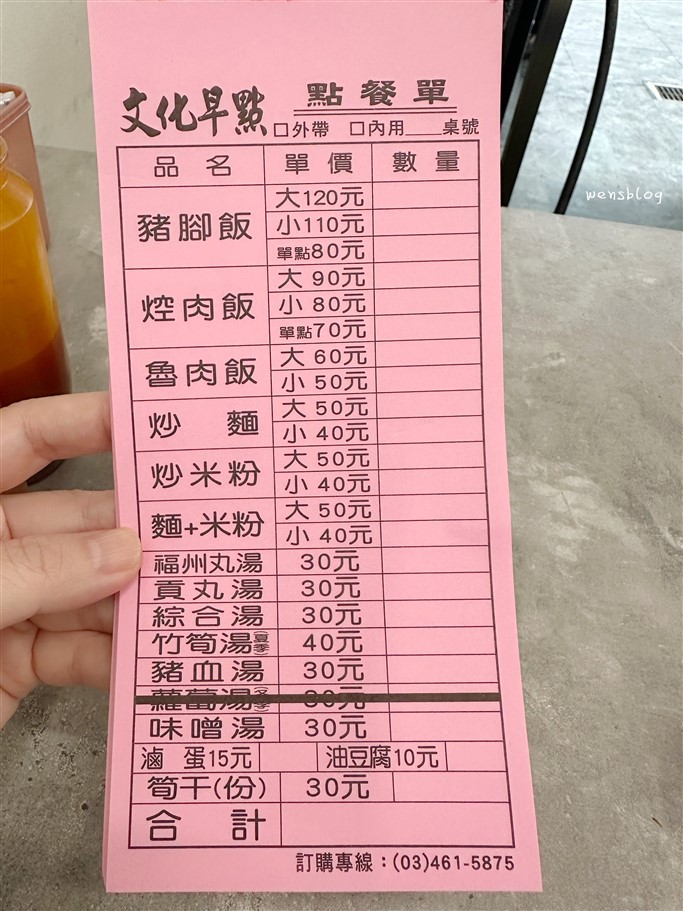 文化早點 點餐單
□外帶 □內用___桌號
品名 單價 數量
豬腳飯 大120元
小110元
單點80元
焢肉飯 大 90元
小 80元
單點70元
魯肉飯 大 60元
小 50元
炒麵 大 50元
小 40元
炒米粉 大 50元
小 40元
麵+米粉 大 50元
小 40元
福州丸湯 30元
貢丸湯 30元
綜合湯 30元
竹筍湯(夏季) 40元
豬血湯 30元
蘿蔔湯(冬季) 30元
味噌湯 30元
滷蛋15元 油豆腐10元
筍干(份) 30元
合計
訂購專線：(03)461-5875
wensblog